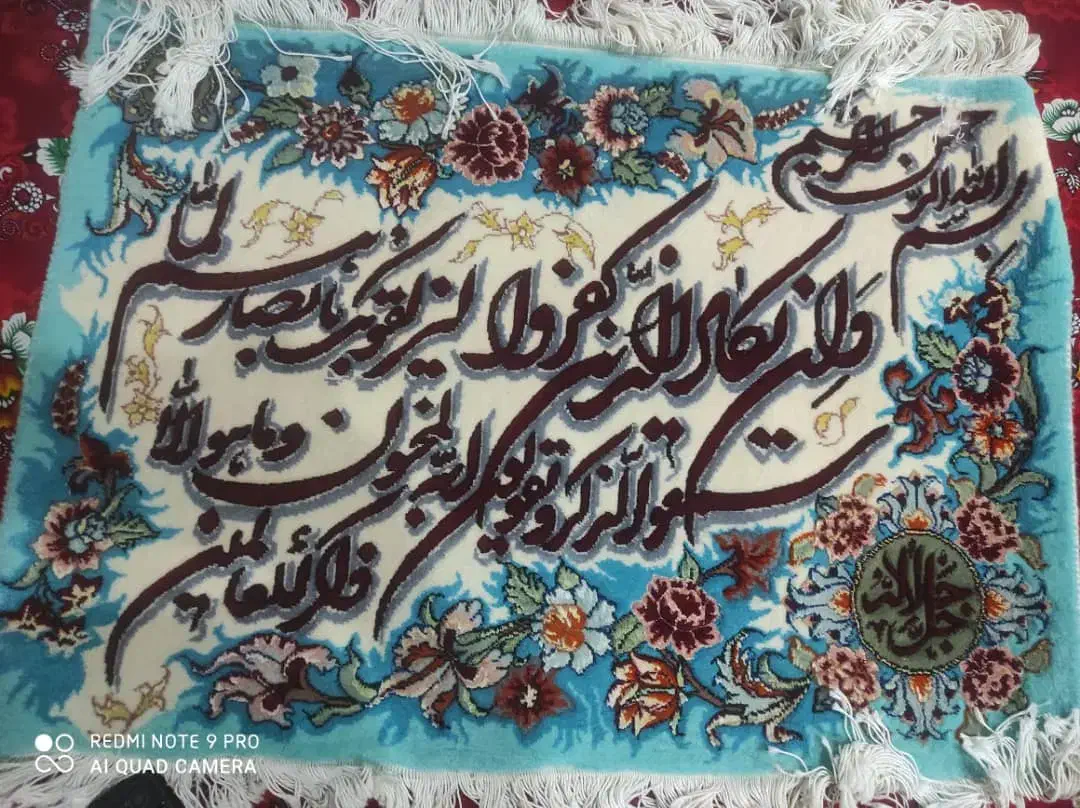 بسم الله الرحمن الرحیم
وَاِن یکاد الذین کفروا لیزلقونک بابصارهم لما
سمعوا الذکر و یقولون انه لمجنون و ما هو الا
ذکر للعالمین
جل جلاله
REDMI NOTE 9 PRO
AI QUAD CAMERA